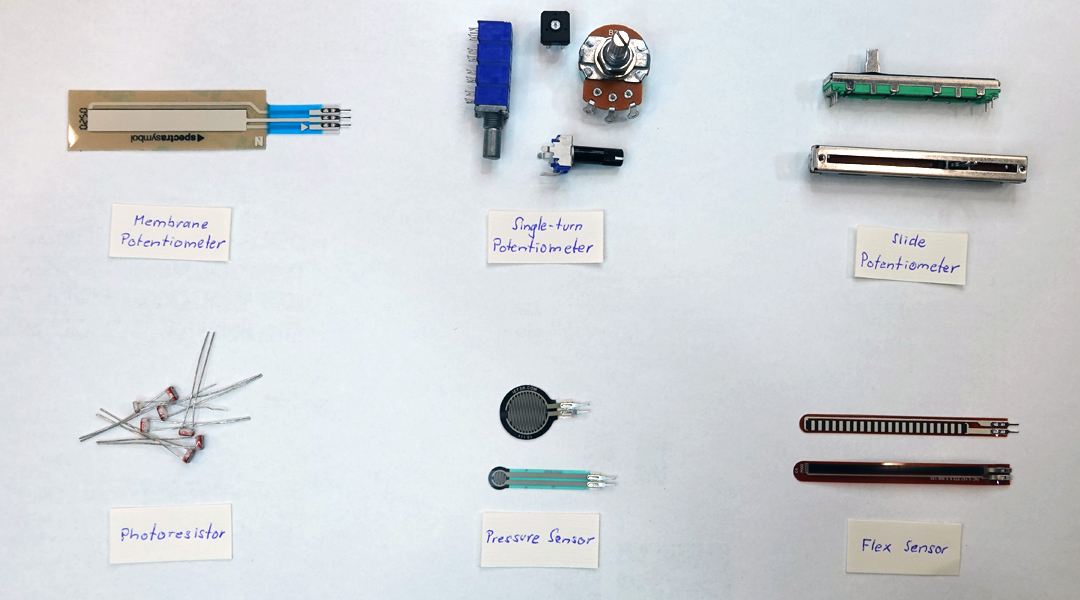 0.25.0
spectrasymbol
N
B2
Membrane
Potentiometer
Single-turn
Potentiometer
Slide
Potentiometer
Photoresistor
Pressure Sensor
Flex Sensor